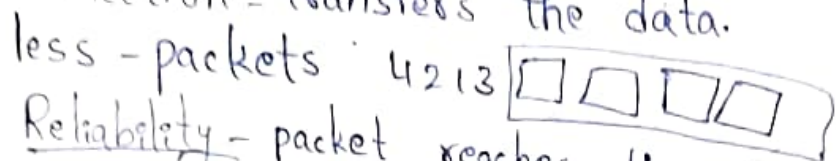 transfers the data.
less - packets 4213
Reliability - packet